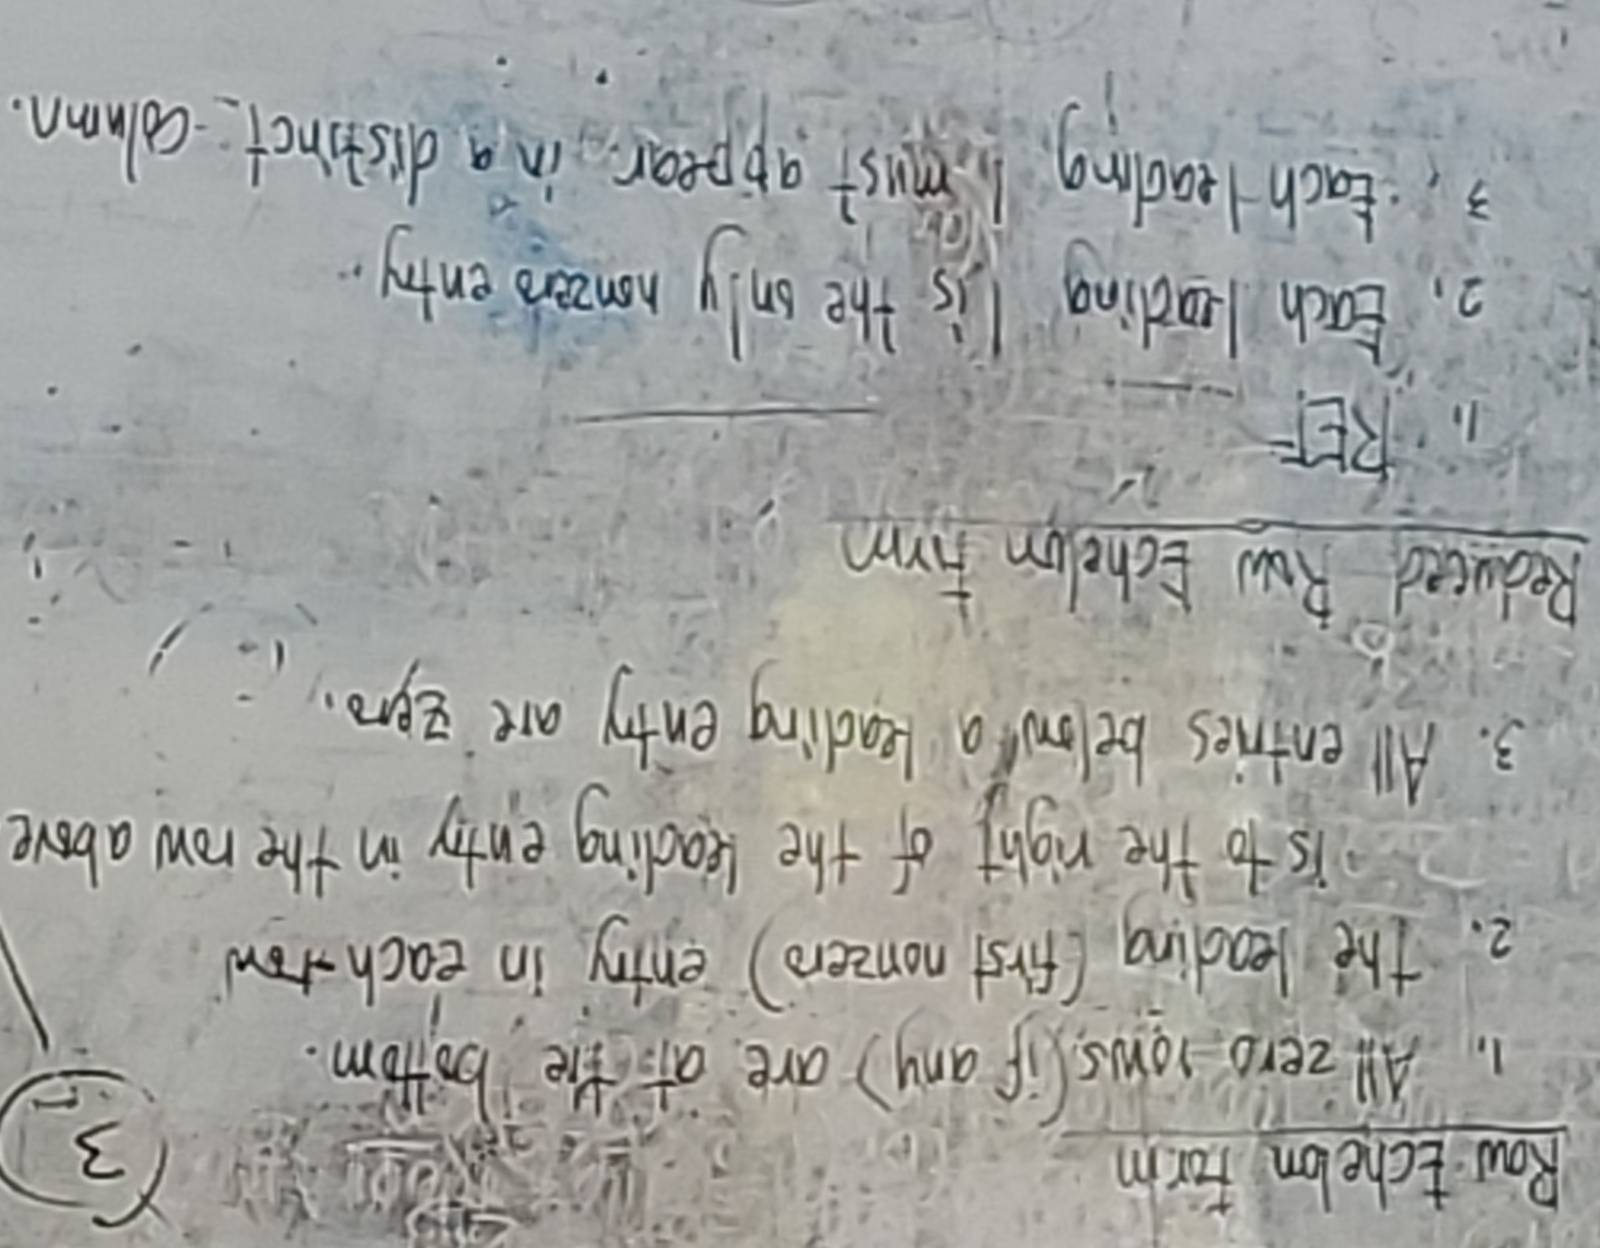 3
Row Echelon Form
1. All zero rows (if any) are at the bottom.
2. The leading (first nonzero) entry in each row
is to the right of the leading entry in the row above
3. All entries below a leading entry are zero.
Reduced Row Echelon Form
1. REF
2. Each leading 1 is the only nonzero entry.
3. Each leading 1 must appear in a distinct column.